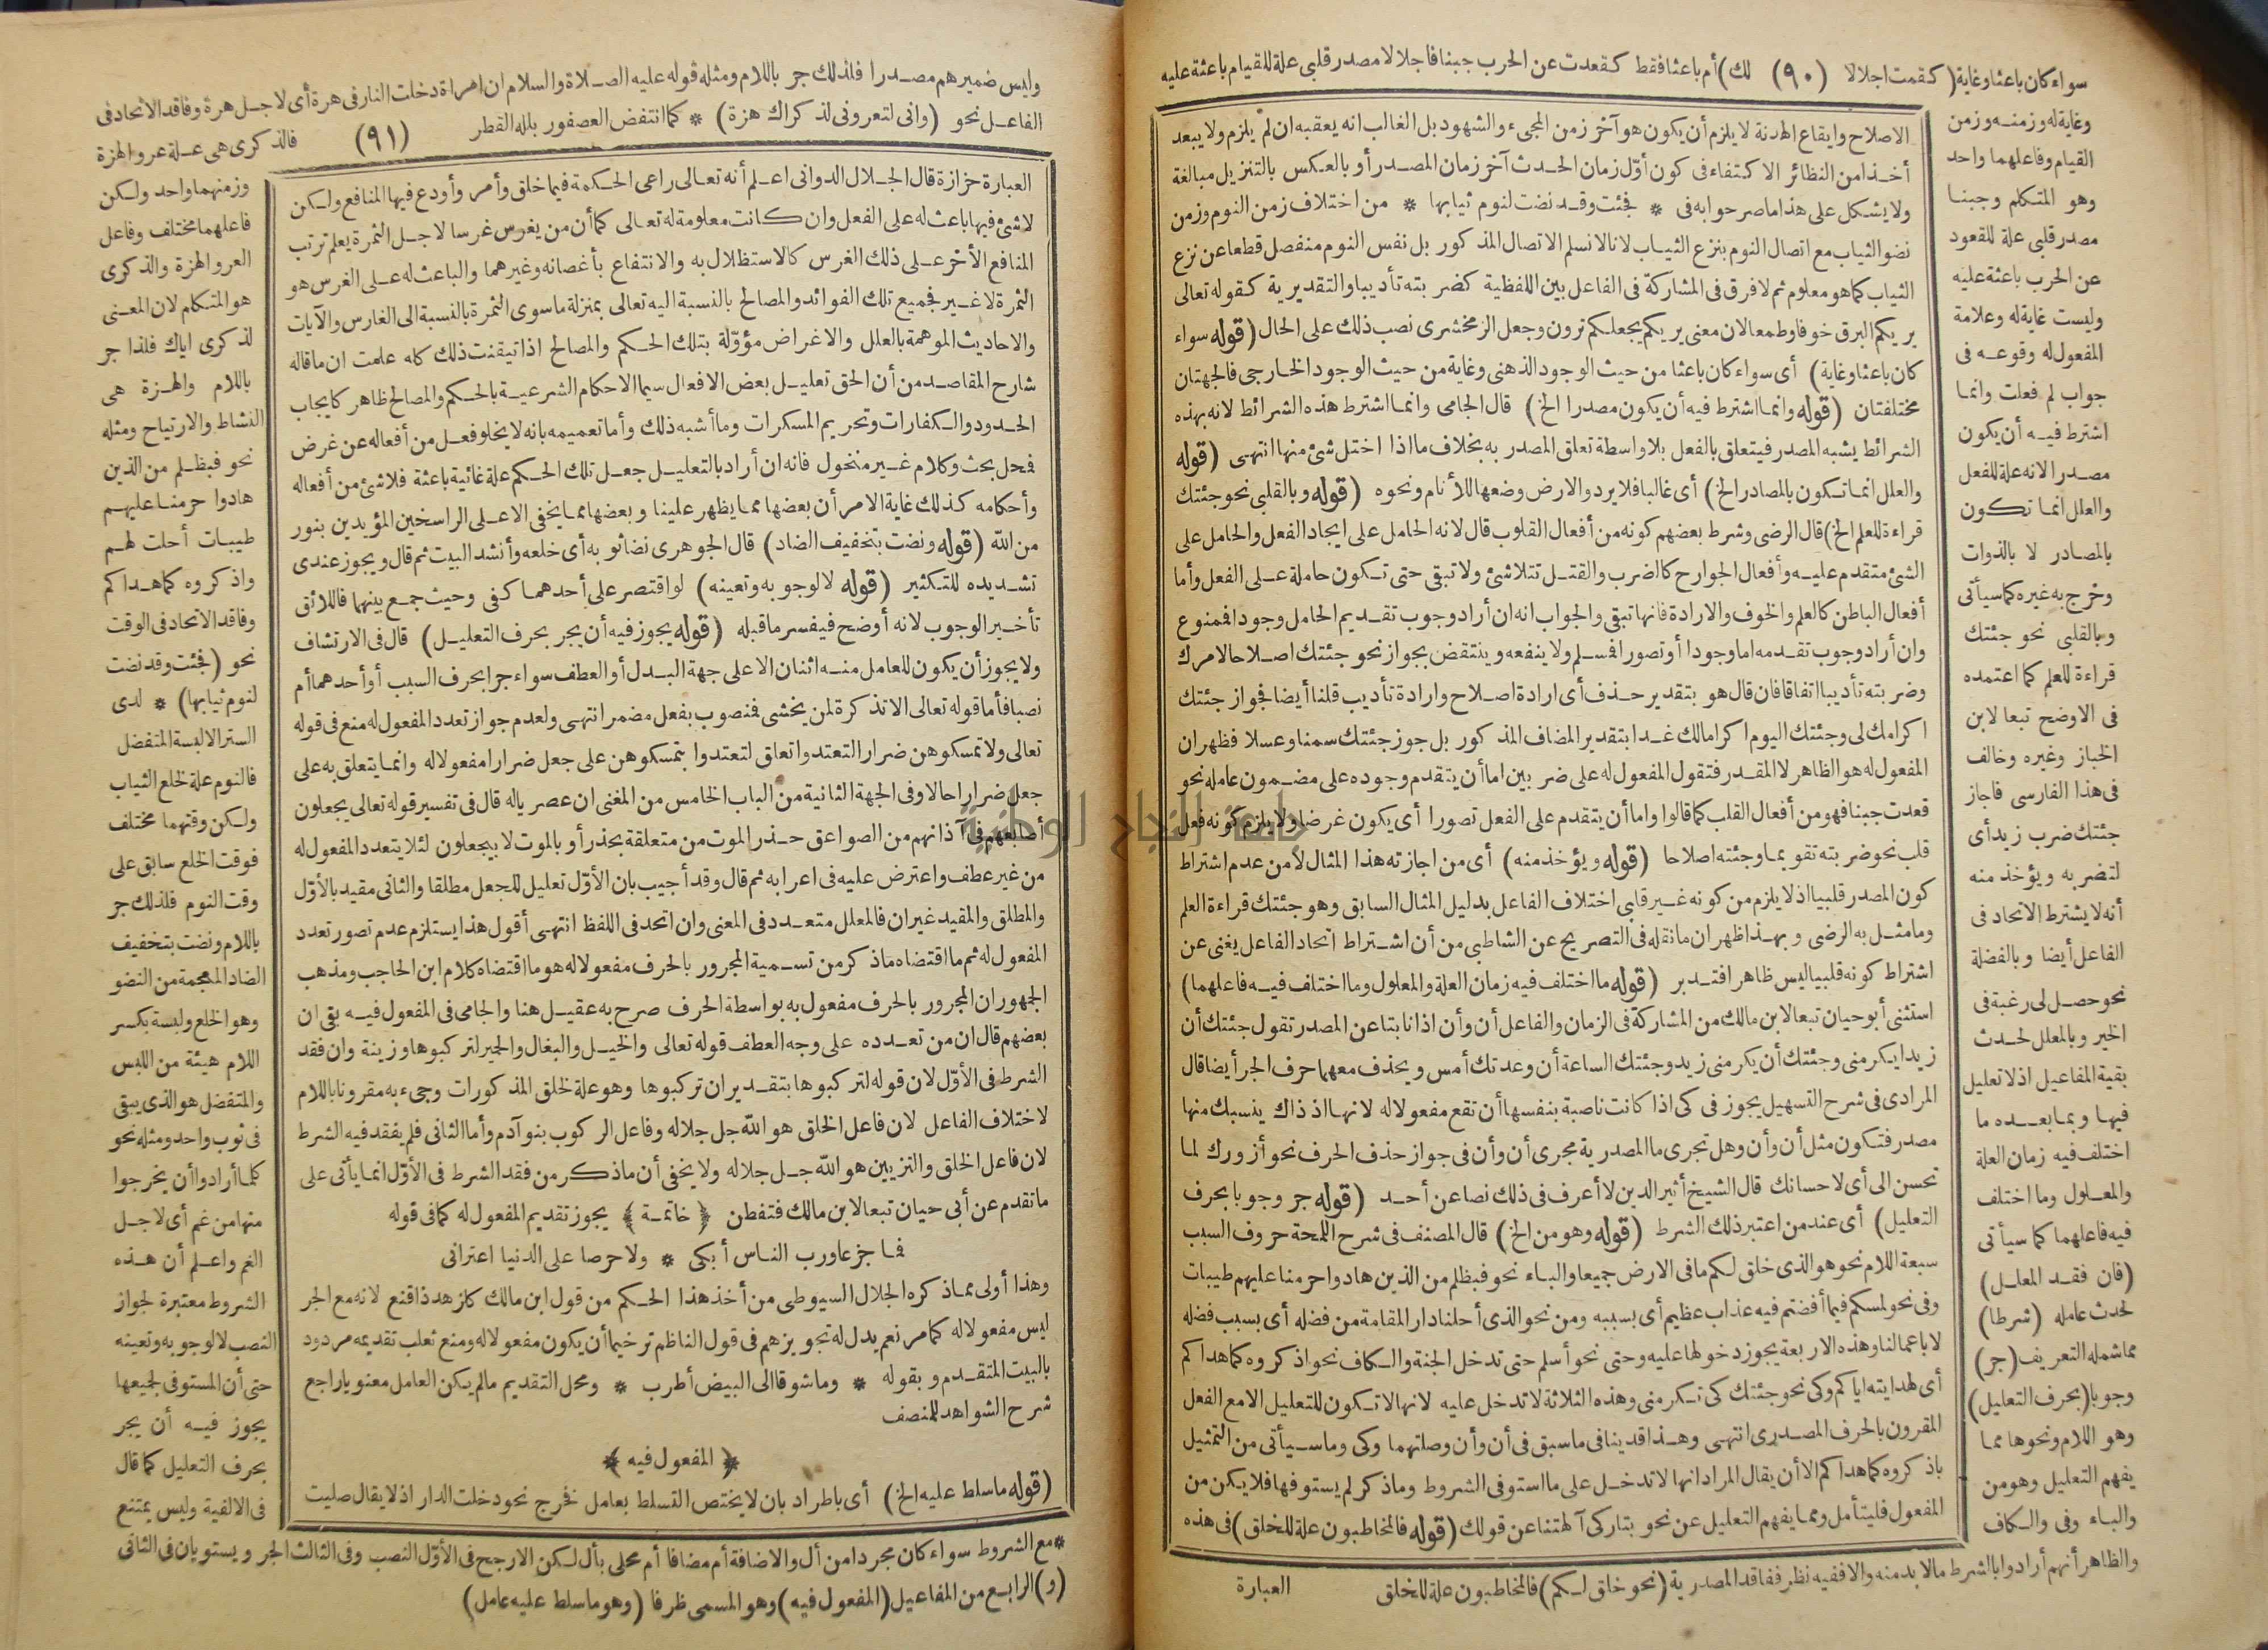 سواء كان باعثا وغاية (كقمت اجلالا (٩٠) لك) أم باعثا فقط كقعدت عن الحرب جبنا فاجلالا مصدر قلبى علة للقيام باعثة عليه
وغاية له وزمنه وزمن
القيام وفاعلهما واحد
وهو المتكلم وجبنا
مصدر قلبى علة للقعود
عن الحرب باعثة عليه
وليست غاية له وعلامة
المفعول له وقوعه فى
جواب لم فعلت وانما
اشترط فيه أن يكون
مصدرا لانه علة للفعل
والعلل انما تكون
بالمصادر لا بالذوات
وخرج به غيره كما سيأتى
وبالقلبى نحو جئتك
قراءة للعلم كما اعتمده
فى الاوضح تبعا لابن
الخباز وغيره وخالف
فى هذا الفارسى فاجاز
جئتك ضرب زيد أى
لتضربه ويؤخذ منه
أنه لا يشترط الاتحاد فى
الفاعل أيضا وبالفضلة
نحو حصل لى رغبة فى
الخير وبالمعلل لحدث
بقية المفاعيل اذ لا تعليل
فيها وبما بعده ما
اختلف فيه زمان العلة
والمعلول وما اختلف
فيه فاعلهما كما سيأتى
(فان فقد المعلل)
لحدث عامله (شرطا)
مما شمله التعريف (جر)
وجوبا (بحرف التعليل)
وهو اللام ونحوها مما
يفهم التعليل وهو من
والباء وفى والكاف
والظاهر أنهم أرادوا بالشرط ما لا بد منه والا ففيه نظر ففاقد المصدرية (نحو خلق لكم) فالمخاطبون علة للخلق
الاصلاح وايقاع الهدنة لا يلزم أن يكون هو آخر زمن المجىء والشهود بل الغالب انه يعقبه ان لم يلزم ولا يبعد
أخذا من النظائر الاكتفاء فى كون أول زمان الحدث آخر زمان المصدر أو بالعكس بالتنزيل مبالغة
ولا يشكل على هذا ما صرحوا به فى * فجئت وقد نضت لنوم ثيابها * من اختلاف زمن النوم وزمن
نضو الثياب مع اتصال النوم بنزع الثياب لانا لا نسلم الاتصال المذكور بل نفس النوم منفصل قطعا عن نزع
الثياب كما هو معلوم ثم لا فرق فى المشاركة فى الفاعل بين اللفظية كضربته تأديبا والتقديرية كقوله تعالى
يريكم البرق خوفا وطمعا لان معنى يريكم يجعلكم ترون وجعل الزمخشرى نصب ذلك على الحال (قوله سواء
كان باعثا وغاية) أى سواء كان باعثا من حيث الوجود الذهنى وغاية من حيث الوجود الخارجى فالجهتان
مختلفتان (قوله وانما اشترط فيه أن يكون مصدرا الخ) قال الجامى وانما اشترط هذه الشرائط لانه بهذه
الشرائط يشبه المصدر فيتعلق بالفعل بلا واسطة تعلق المصدر به بخلاف ما اذا اختل شئ منها انتهى (قوله
والعلل انما تكون بالمصادر الخ) أى غالبا فلا يرد والارض وضعها للأنام ونحوه (قوله وبالقلبى نحو جئتك
قراءة للعلم الخ) قال الرضى وشرط بعضهم كونه من أفعال القلوب قال لانه الحامل على ايجاد الفعل والحامل على
الشئ متقدم عليه وأفعال الجوارح كالضرب والقتل تتلاشئ ولا تبقى حتى تكون حاملة على الفعل وأما
أفعال الباطن كالعلم والخوف والارادة فانها تبقى والجواب انه ان أراد وجوب تقديم الحامل وجودا فممنوع
وان أراد وجوب تقدمه اما وجودا أو تصورا فمسلم ولا ينفعه وينتقض بجواز نحو جئتك اصلاحا لامرك
وضربته تأديبا اتفاقا فان قال هو بتقدير حذف أى ارادة اصلاح وارادة تأديب قلنا أيضا فجواز جئتك
اكرامك لى وجئتك اليوم اكرامالك غدا بتقدير المضاف المذكور بل جوز جئتك سمنا وعسلا فظهر ان
المفعول له هو الظاهر لا المقدر فتقول المفعول له على ضربين اما أن يتقدم وجوده على مضمون عامله نحو
قعدت جبنا فهو من أفعال القلب كما قالوا واما أن يتقدم على الفعل تصورا أى يكون غرضا ولا يلزم كونه فعل
قلب نحو ضربته تقويما وجئته اصلاحا (قوله ويؤخذ منه) أى من اجازته هذا المثال لا من عدم اشتراط
كون المصدر قلبيا اذ لا يلزم من كونه غير قلبى اختلاف الفاعل بدليل المثال السابق وهو جئتك قراءة العلم
وما مثل به الرضى وبهذا ظهر ان ما نقله فى التصريح عن الشاطبى من أن اشتراط اتحاد الفاعل يغنى عن
اشتراط كونه قلبيا ليس ظاهرا فتدبر (قوله ما اختلف فيه زمان العلة والمعلول وما اختلف فيه فاعلهما)
استثنى أبو حيان تبعا لابن مالك من المشاركة فى الزمان والفاعل أن وأن اذا نابتا عن المصدر تقول جئتك أن
زيدا يكرمنى وجئتك أن يكرمنى زيد وجئتك الساعة أن وعدتك أمس ويحذف معهما حرف الجر أيضا قال
المرادى فى شرح التسهيل يجوز فى كى اذا كانت ناصبة بنفسها أن تقع مفعولا له لانها اذ ذاك ينسبك منها
مصدر فتكون مثل أن وأن وهل تجرى ما المصدرية مجرى أن وأن فى جواز حذف الحرف نحو أزورك لما
تحسن الى أى لاحسانك قال الشيخ أثير الدين لا أعرف فى ذلك نصا عن أحد (قوله جر وجوبا بحرف
التعليل) أى عند من اعتبر ذلك الشرط (قوله وهو من الخ) قال المصنف فى شرح اللمحة حروف السبب
سبعة اللام نحو هو الذى خلق لكم ما فى الارض جميعا والباء نحو فبظلم من الذين هادوا حرمنا عليهم طيبات
وفى نحو لمسكم فيما أفضتم فيه عذاب عظيم أى بسببه ومن نحو الذى أحلنا دار المقامة من فضله أى بسبب فضله
لا باعمالنا وهذه الاربعة يجوز دخولها عليه وحتى نحو أسلم حتى تدخل الجنة والكاف نحو اذكروه كما هداكم
أى لهدايته اياكم وكى نحو جئتك كى تكرمنى وهذه الثلاثة لا تدخل عليه لانها لا تكون للتعليل الا مع الفعل
المقرون بالحرف المصدرى انتهى وهذا قد ينافى ما سبق فى أن وأن وصلتهما وكى وما سيأتى من التمثيل
باذكروه كما هداكم الا أن يقال المراد انها لا تدخل على ما استوفى الشروط وما ذكر لم يستوفها فلا يكن من
المفعول فليتأمل ومما يفهم التعليل عن نحو بتاركى آلهتنا عن قولك (قوله فالمخاطبون علة للخلق) فى هذه
العبارة
وليس ضميرهم مصدرا فلذلك جر باللام ومثله قوله عليه الصلاة والسلام ان امرأة دخلت النار فى هرة أى لاجل هرة وفاقد الاتحاد فى
الفاعل نحو (وانى لتعرونى لذكراك هزة) * كما انتفض العصفور بلله القطر (٩١) فالذكرى هى علة عرو الهزة
وزمنهما واحد ولكن
فاعلهما مختلف وفاعل
العرو الهزة والذكرى
هو المتكلم لان المعنى
لذكرى اياك فلذا جر
باللام والهزة هى
النشاط والارتياح ومثله
نحو فبظلم من الذين
هادوا حرمنا عليهم
طيبات أحلت لهم
واذكروه كما هداكم
وفاقد الاتحاد فى الوقت
نحو (فجئت وقد نضت
لنوم ثيابها) * لدى
الستر الا لبسة المتفضل
فالنوم علة لخلع الثياب
ولكن وقتهما مختلف
فوقت الخلع سابق على
وقت النوم فلذلك جر
باللام ونضت بتخفيف
الضاد المعجمة من النضو
وهو الخلع ولبسة بكسر
اللام هيئة من اللبس
والمتفضل هو الذى يبقى
فى ثوب واحد ومثله نحو
كلما أرادوا أن يخرجوا
منها من غم أى لاجل
الغم واعلم أن هذه
الشروط معتبرة لجواز
النصب لا لوجوبه وتعينه
حتى أن المستوفى لجميعها
يجوز فيه أن يجر
بحرف التعليل كما قال
فى الالفية وليس يمتنع
العبارة حزازة قال الجلال الدوانى اعلم أنه تعالى راعى الحكمة فيما خلق وأمر وأودع فيها المنافع ولكن
لا شئ فيها باعث له على الفعل وان كانت معلومة له تعالى كما أن من يغرس غرسا لاجل الثمرة يعلم ترتب
المنافع الأخر على ذلك الغرس كالاستظلال به والانتفاع بأغصانه وغيرهما والباعث له على الغرس هو
الثمرة لا غير فجميع تلك الفوائد والمصالح بالنسبة اليه تعالى بمنزلة ما سوى الثمرة بالنسبة الى الغارس والآيات
والاحاديث الموهمة بالعلل والاغراض مؤولة بتلك الحكم والمصالح اذا تيقنت ذلك كله علمت ان ما قاله
شارح المقاصد من أن الحق تعليل بعض الافعال سيما الاحكام الشرعية بالحكم والمصالح ظاهر كايجاب
الحدود والكفارات وتحريم المسكرات وما أشبه ذلك وأما تعميمه بانه لا يخلو فعل من أفعاله عن غرض
فمحل بحث وكلام غير منخول فانه ان أراد بالتعليل جعل تلك الحكم علة غائية باعثة فلا شئ من أفعاله
وأحكامه كذلك غاية الامر أن بعضها مما يظهر علينا وبعضها مما يخفى الا على الراسخين المؤيدين بنور
من الله (قوله ونضت بتخفيف الضاد) قال الجوهرى نضا ثوبه أى خلعه وأنشد البيت ثم قال ويجوز عندى
تشديده للتكثير (قوله لا لوجوبه وتعينه) لو اقتصر على أحدهما كفى وحيث جمع بينهما فاللائق
تأخير الوجوب لانه أوضح فيفسر ما قبله (قوله يجوز فيه أن يجر بحرف التعليل) قال فى الارتشاف
ولا يجوز أن يكون للعامل منه اثنان الا على جهة البدل أو العطف سواء جرا بحرف السبب أو أحدهما أم
نصبا فأما قوله تعالى الا تذكرة لمن يخشى فمنصوب بفعل مضمر انتهى ولعدم جواز تعدد المفعول له منع فى قوله
تعالى ولا تمسكوهن ضرارا لتعتدوا تعلق لتعتدوا بتمسكوهن على جعل ضرارا مفعولا له وانما يتعلق به على
جعل ضرارا حالا وفى الجهة الثانية من الباب الخامس من المغنى ان عصريا له قال فى تفسير قوله تعالى يجعلون
أصابعهم فى آذانهم من الصواعق حذر الموت من متعلقة بحذر أو بالموت لا بيجعلون لئلا يتعدد المفعول له
من غير عطف واعترض عليه فى اعرابه ثم قال وقد أجيب بان الأول تعليل للجعل مطلقا والثانى مقيد بالأول
والمطلق والمقيد غيران فالمعلل متعدد فى المعنى وان اتحد فى اللفظ انتهى أقول هذا يستلزم عدم تصور تعدد
المفعول له ثم ما اقتضاه ما ذكر من تسمية المجرور بالحرف مفعولا له هو ما اقتضاه كلام ابن الحاجب ومذهب
الجمهور ان المجرور بالحرف مفعول به بواسطة الحرف صرح به عقيل هنا والجامى فى المفعول فيه بقى ان
بعضهم قال ان من تعدده على وجه العطف قوله تعالى والخيل والبغال والحمير لتركبوها وزينة وان فقد
الشرط فى الأول لان قوله لتركبوها بتقدير ان تركبوها وهو علة لخلق المذكورات وجىء به مقرونا باللام
لاختلاف الفاعل لان فاعل الخلق هو الله جل جلاله وفاعل الركوب بنو آدم وأما الثانى فلم يفقد فيه الشرط
لان فاعل الخلق والتزيين هو الله جل جلاله ولا يخفى أن ما ذكر من فقد الشرط فى الأول انما يأتى على
ما تقدم عن أبى حيان تبعا لابن مالك فتفطن ﴿خاتمة﴾ يجوز تقديم المفعول له كما فى قوله
فما جزعا ورب الناس أبكى * ولا حرصا على الدنيا اعترانى
وهذا أولى مما ذكره الجلال السيوطى من أخذ هذا الحكم من قول ابن مالك كازهد ذا قنع لانه مع الجر
ليس مفعولا له كما مر نعم يدل له تجويزهم فى قول الناظم ترخيما أن يكون مفعولا له ومنع ثعلب تقديمه مردود
بالبيت المتقدم وبقوله * وما شوقا الى البيض أطرب * ومحل التقديم ما لم يكن العامل معنويا راجع
شرح الشواهد للمنصف
﴿المفعول فيه﴾
(قوله ما سلط عليه الخ) أى باطراد بان لا يختص التسلط بعامل فخرج نحو دخلت الدار اذ لا يقال صليت
*مع الشروط سواء كان مجردا من أل والاضافة أم مضافا أم محلى بأل لكن الارجح فى الأول النصب وفى الثالث الجر ويستويان فى الثانى
(و) الرابع من المفاعيل (المفعول فيه) وهو المسمى ظرفا (وهو ما سلط عليه عامل)
جامعة النجاح الوطنية